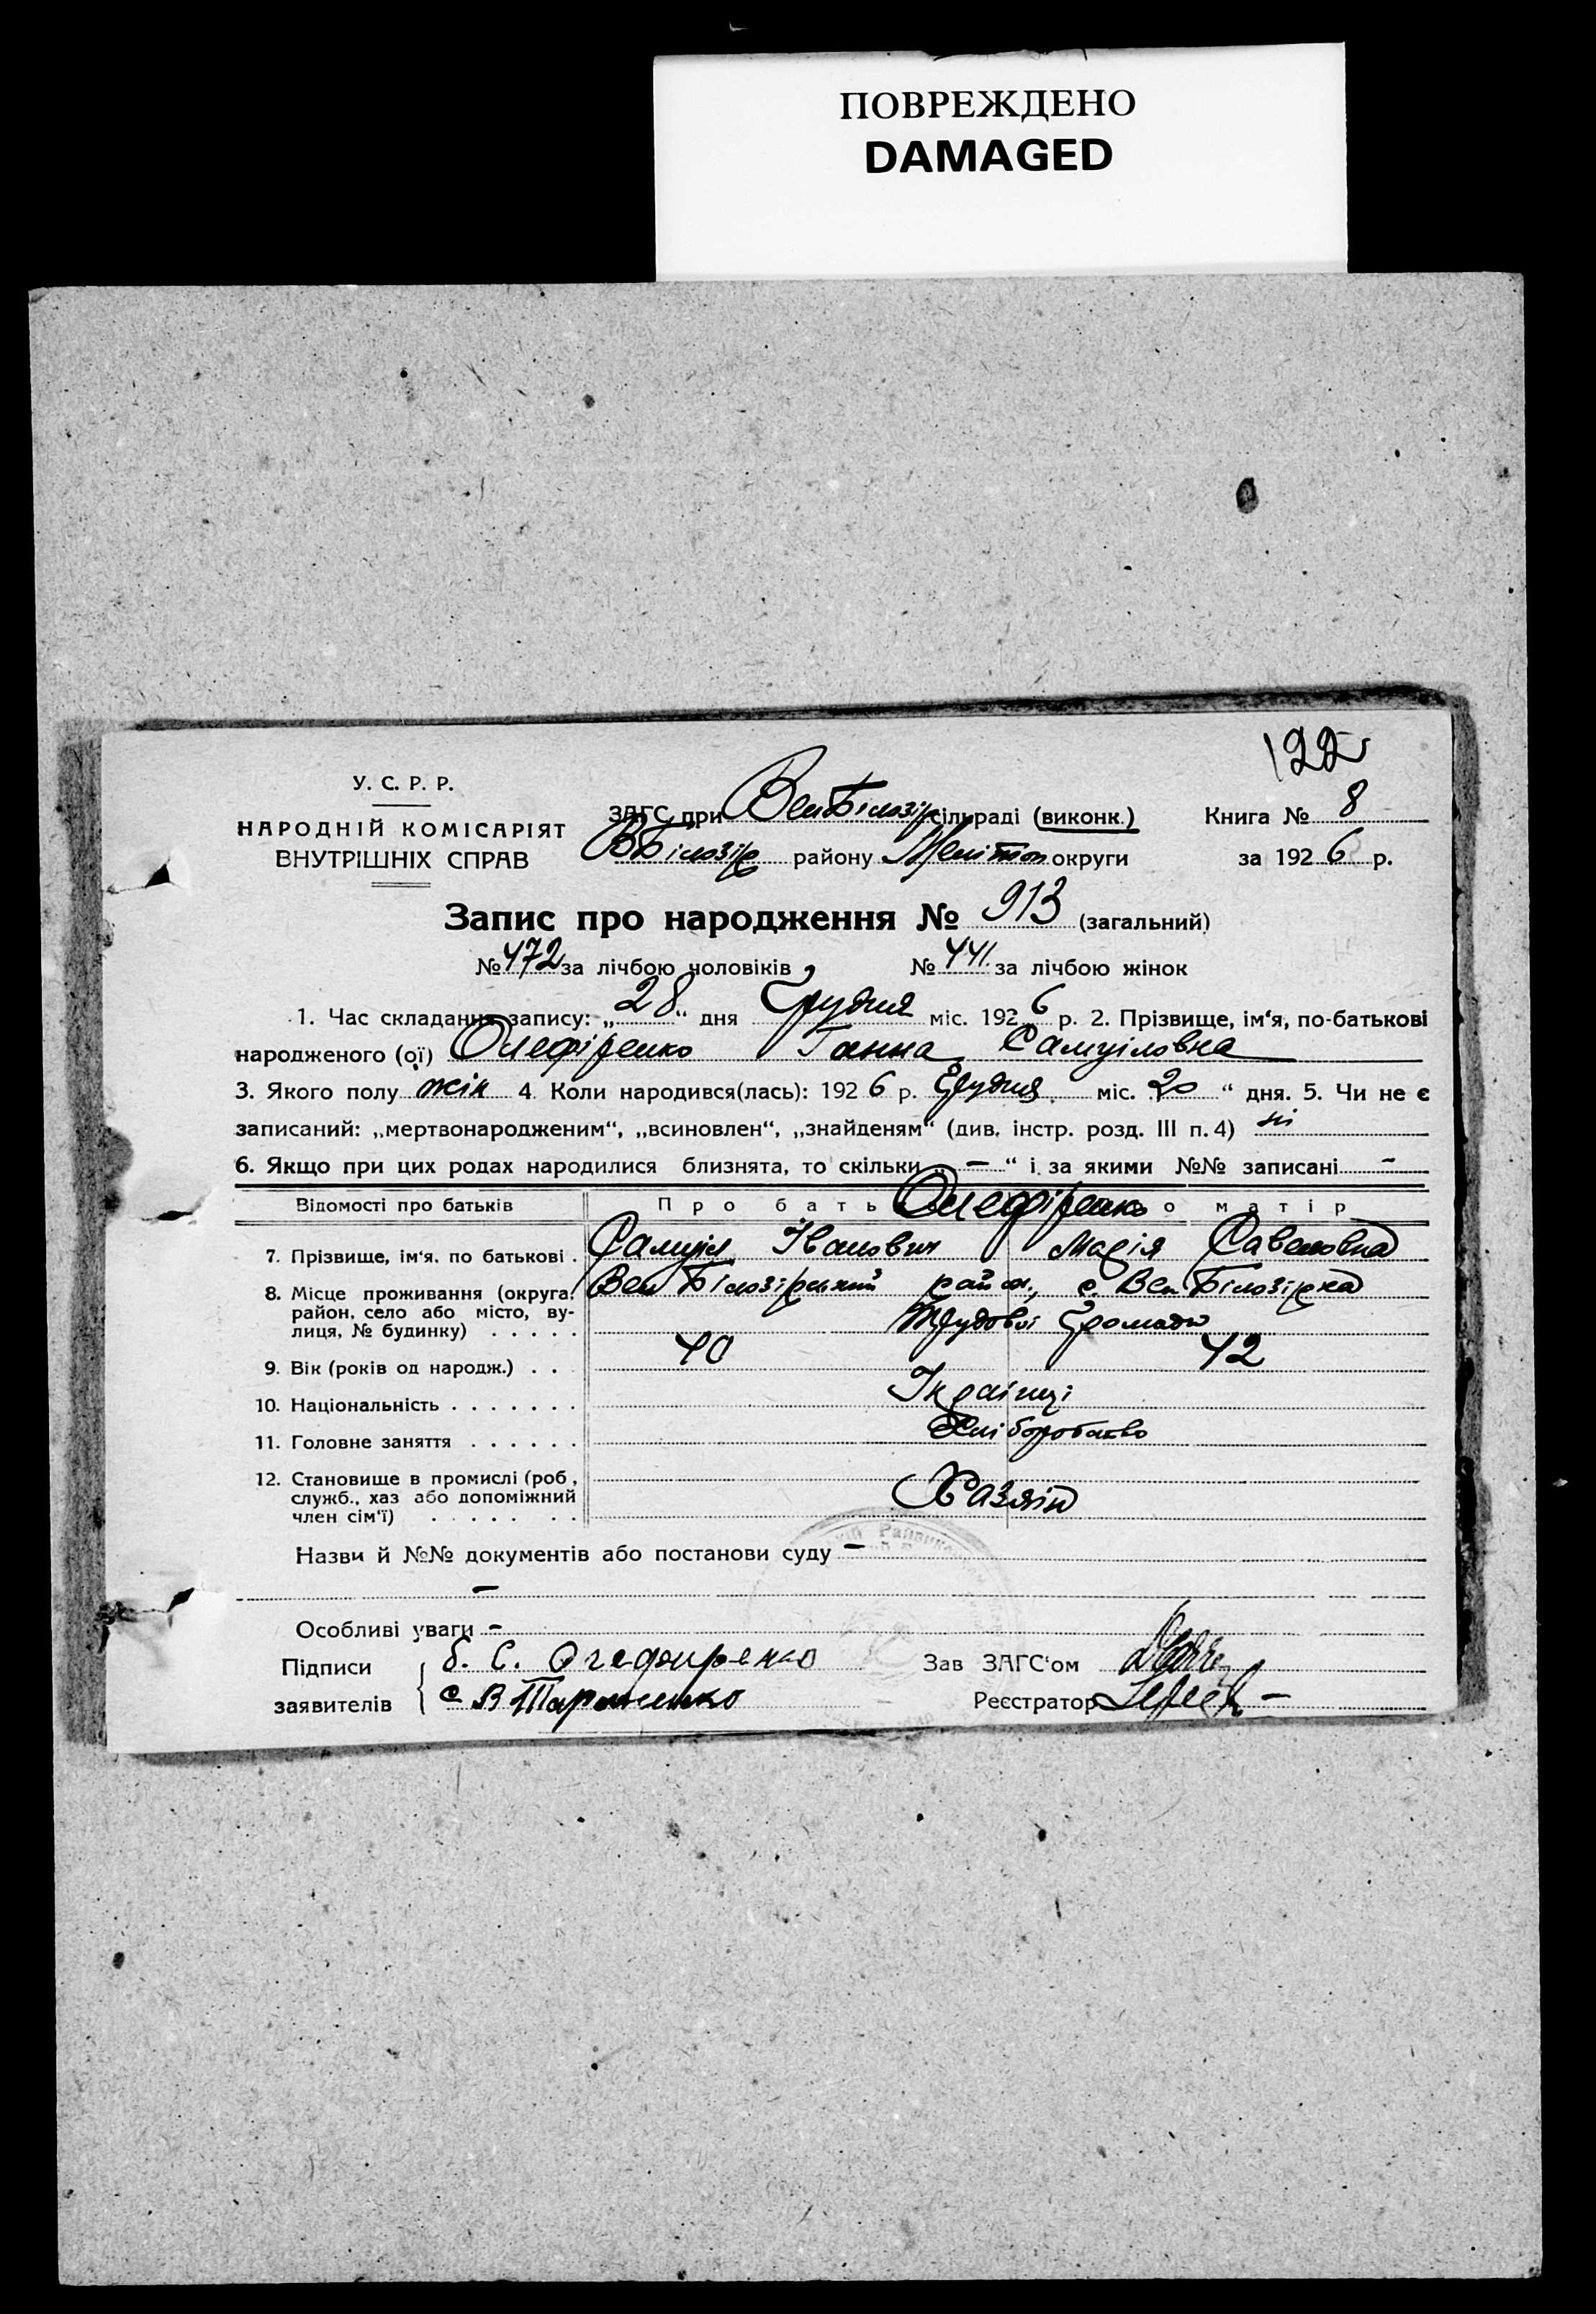 ПОВРЕЖДЕНО
DAMAGED
122
У. С. Р. Р.
НАРОДНІЙ КОМІСАРІЯТ
ВНУТРІШНІХ СПРАВ
ЗАГС при ВелБілозір сільраді (виконк.)
ВБілозір району Мелітоп округи
Книга № 8
за 1926 р.
Запис про народження № 913 (загальний)
№ 472 за лічбою чоловіків № 441 за лічбою жінок
1. Час складання запису: „28“ дня Грудня міс. 1926 р. 2. Прізвище, ім‘я, по-батькові
народженого (ої) Олефіренко Ганна Самуіловна
3. Якого полу жін 4. Коли народився(лась): 1926 р. Грудня міс. 20 “ дня. 5. Чи не є
записаний: „мертвонародженим“, „всиновлен“, „знайденям“ (див. інстр. розд. III п. 4) ні
6. Якщо при цих родах народилися близнята, то скільки „ — “ і за якими №№ записані —
Відомості про батьків Про бать Олефіренко о матір
7. Прізвище, ім‘я, по батькові . Самуіл Іванович Марія Савеловна
8. Місце проживання (округа, Вел Білозірський район, с. Вел Білозірка
район, село або місто, ву-
лиця, № будинку) . . . . . Трудової Громади
9. Вік (років од народж.) . . 40 42
10. Національність . . . . . . . Українці
11. Головне заняття . . . . . . Хліборобство
12. Становище в промислі (роб,
служб., хаз або допоміжний Хазяїн
член сім‘ї) . . . . . . .
Назви й №№ документів або постанови суду —
—
Особливі уваги —
Підписи С. Олефиренко Зав ЗАГС‘ом
заявителів Реєстратор